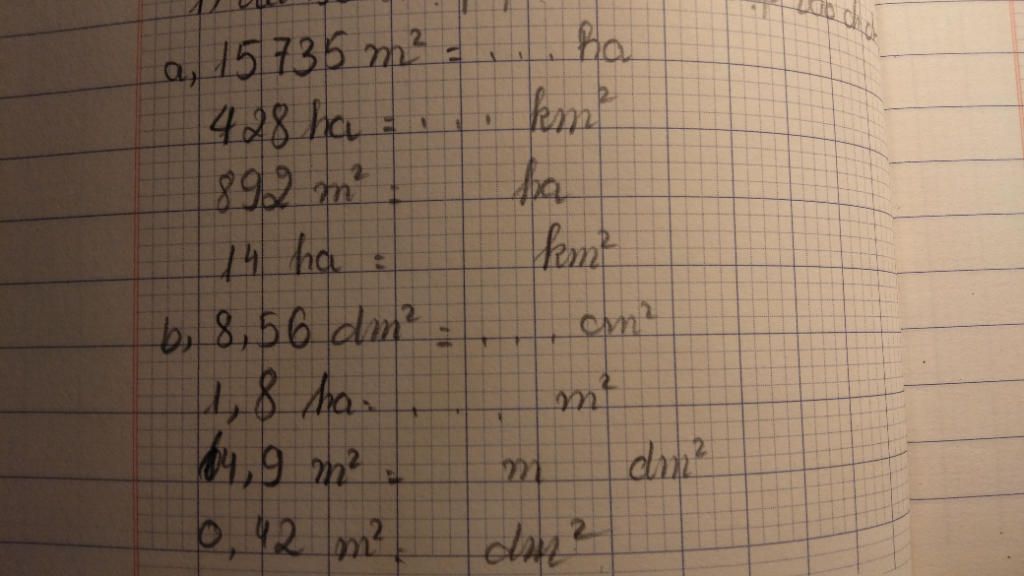 a, 15735 m² = ... ha
428 ha = ... km²
892 m² = ha
14 ha = km²
b, 8,56 dm² = ... cm²
1,8 ha = ... m²
14,9 m² = m dm²
0,42 m² = dm²